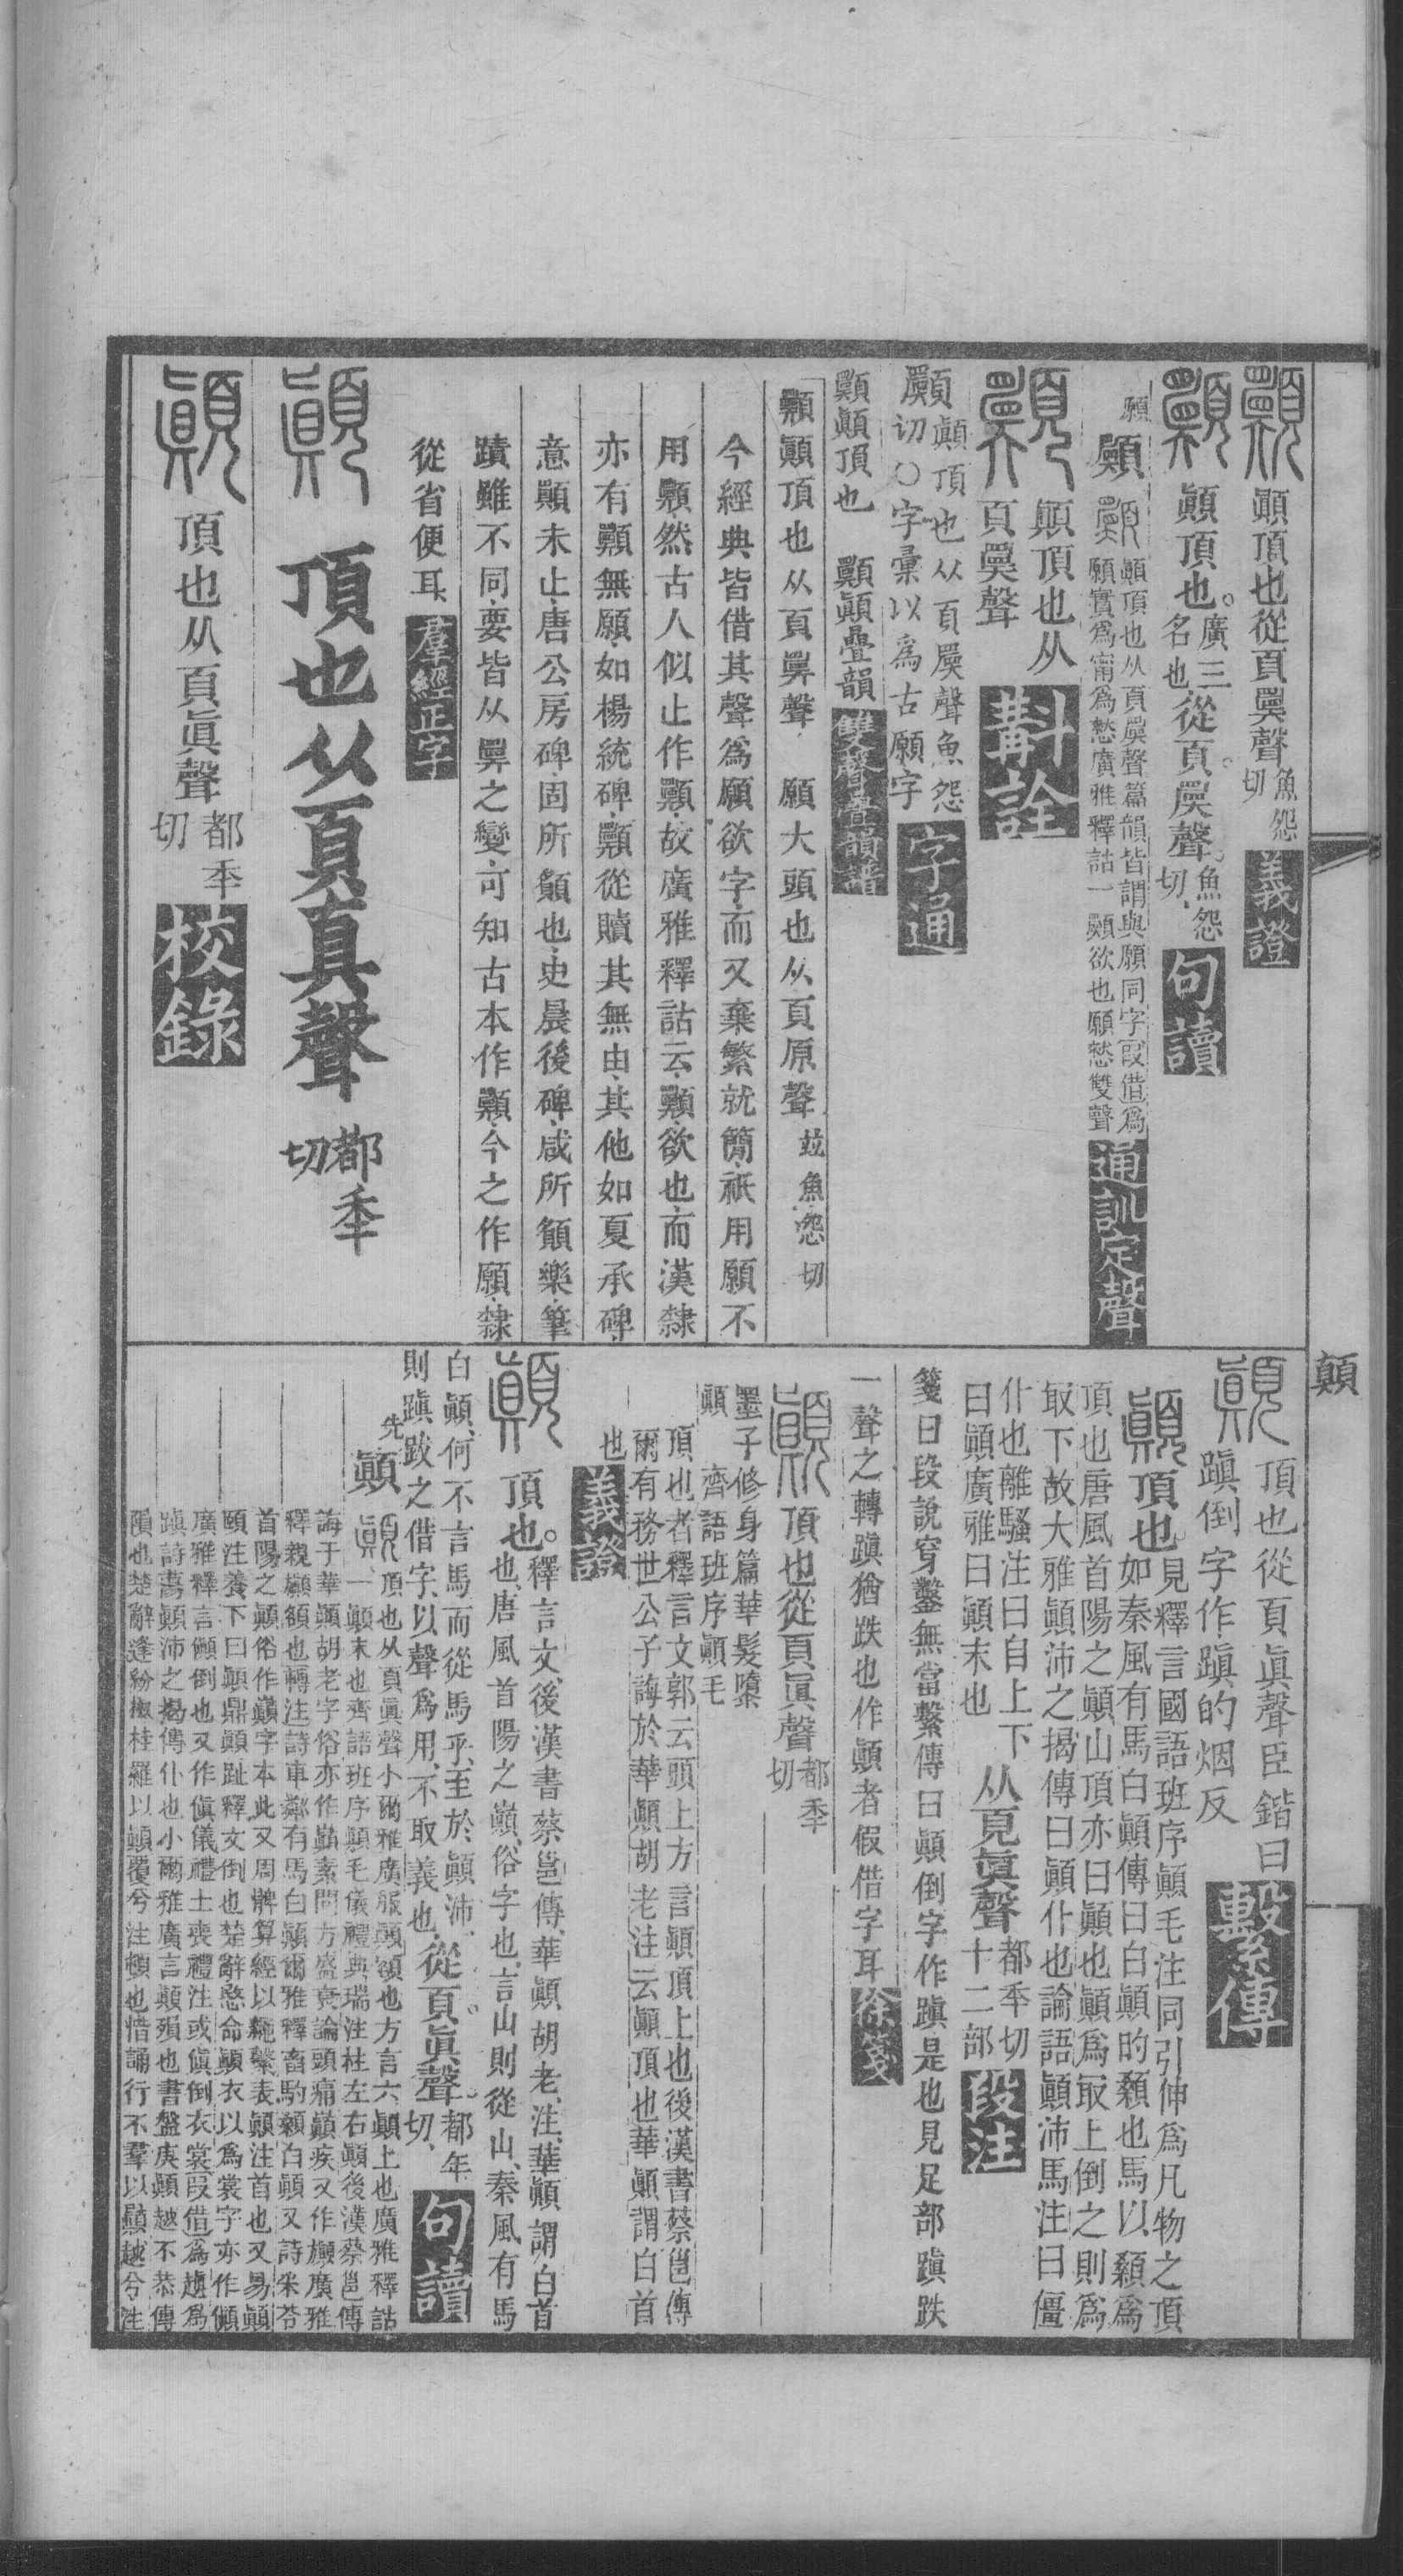 顛頂也從頁䍃聲魚怨切 義證
顛頂也。廣三名也從頁。䍃聲。魚怨切、句讀
願 顛頂也从頁䍃聲篇韻皆謂與願同字叚借爲
願實爲甯爲愁廣雅釋詁一顠欲也願愁雙聲 通訓定聲
顛頂也从
頁䍃聲 斠詮
顛頂也从頁䍃聲魚怨
切○字彙以爲古願字 字通
顛頂也 疊韻 雙聲疊韻譜
顛頂也从頁聲 願大頭也从頁原聲 竝魚怨切
今經典皆借其聲爲願欲字、而又棄繁就簡、祇用願不
用顠、然古人似止作顠、故廣雅釋詁云、顠、欲也、而漢隸
亦有顠無願、如楊統碑、顠從贖其無由、其他如夏承碑、
意顠未止、唐公房碑、固所願也、史晨後碑、咸所願樂、筆
蹟雖不同、要皆从之變、可知古本作顠、今之作願、隸
從省便耳、羣經正字
頂也从頁真聲 都秊切
頂也从頁眞聲 都秊切 校錄
顛
頂也從頁眞聲臣鍇曰
蹎倒字作蹎的烟反 繫傳
頂也。見釋言國語班序顛毛注同引伸爲凡物之頂
如秦風有馬白顛傳曰白顛的顙也馬以顙爲
頂也唐風首陽之顛山頂亦曰顛也顛爲㝡上倒之則爲
㝡下故大雅顛沛之揭傳曰顛仆也論語顛沛馬注曰僵
仆也離騷注曰自上下
曰顛廣雅曰顛末也 从頁眞聲 都秊切十二部 段注
箋曰段說穿鑿無當繫傳曰顛倒字作蹎是也見足部蹎跌
一聲之轉蹎猶跌也作顛者假借字耳 徐箋
頂也從頁眞聲 都秊切
墨子修身篇華髮隳
顛 齊語班序顛毛
頂也者釋言文郭云頭上方言顛頂上也後漢書蔡邕傳
爾有務世公子誨於華顛胡老注云顛頂也華顛謂白首
也 義證
頂也。釋言文、後漢書蔡邕傳、華顛胡老、注、華顛謂白首
也、唐風首陽之巔、俗字也、言山則從山、秦風有馬
白顛、何不言馬而從馬乎、至於顛沛、
則蹎跋之借字、以聲爲用、不取義也、從頁。眞聲。都年切、句讀
先顛 頂也从頁眞聲小爾雅廣服顛額也方言六顛上也廣雅釋詁
一顛末也齊語班序顛毛儀禮典瑞注柱左右顛後漢蔡邕傳
誨于華顛胡老字俗亦作巔素問方盛衰論頭痛巔疾又作㒹廣雅
釋親顚額也轉注詩車鄰有馬白顛爾雅釋畜馰顙白顛又詩采苓
首陽之顛俗作巔字本此又周髀算經以繩繫表顛注首也又易顛
頤注養下曰顛鼎顛趾釋文倒也楚辭愍命顛衣以爲裳字亦作傎
廣雅釋言傎倒也又作傎儀禮士喪禮注或傎倒衣裳叚借爲趚爲
蹎詩蕩顛沛之揭傳仆也小爾雅廣言顛殞也書盤庚顛越不恭傳
隕也楚辭逢紛椒桂羅以顛覆兮注頓也惜誦行不羣以顛越兮注